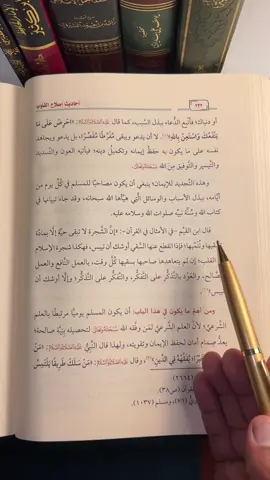 أحاديث إصلاح القلوب
١٢٢
أو دنياك؛ فأتبع الدُّعاء ببذل السَّبب، كما قال ﷺ: «احْرِصْ عَلَى مَا
يَنْفَعُكَ وَاسْتَعِنْ بِاللهِ»، لا أن يدعو ويبقى مُفَرِّطًا مُقَصِّرًا، بل يدعو ويجاهد
نفسه على ما يكون به حفظُ إيمانه وتكميلُ دينه؛ فيأتيه العون والتَّسديد
والتَّيسير والتَّوفيق مِنَ الله
وهذه التَّجديد للإيمان؛ ينبغي أن يكون مصاحبًا للمسلم في كُلِّ يوم من
أيَّامه، ببذل الأسباب والوسائل الَّتي هيَّأها الله سبحانه، وقد جاء تبيانها في
كتاب الله وسُنَّة نبيِّه صلوات الله وسلامه عليه.
قال ابن القيِّم -في الأمثال في القرآن-: «إنَّ الشَّجرة لا تبقى حيَّةً إلَّا بمادَّة
تسقيها وتُنَمِّيها؛ فإذا انقطع عنها السَّقي أوشك أن تيبس، فهكذا شجرة الإسلام
القلب؛ إن لم يتعاهدها صاحبها بسقيها كلَّ وقت، بالعلم النَّافع والعمل
صَّالح، والعَوْد بالتَّذكُّر على التَّفكُّر، والتَّفكُّر على التَّذكُّر؛ وإلَّا أوشك أن
ومن أهم ما يكون في هذا الباب: أن يكون المسلم يوميًّا مرتبطًا بالعلم
الشَّرعيِّ؛ لأنَّ العلم الشَّرعيَّ لمَنْ وفَّقه الله لتحصيله بنيَّة صالحة؛
يعدُّ صمام أمان لحفظ الإيمان وتقويته، ولهذا قال النَّبيُّ ﷺ: «مَنْ
يُفَقِّهْهُ فِي الدِّينِ»، وقال ﷺ: «مَنْ سَلَكَ طَرِيقًا يَلْتَمِسُ
(٢٦٦٤)
(ص٣٨).
(٧١)، ومسلم (١٠٣٧).